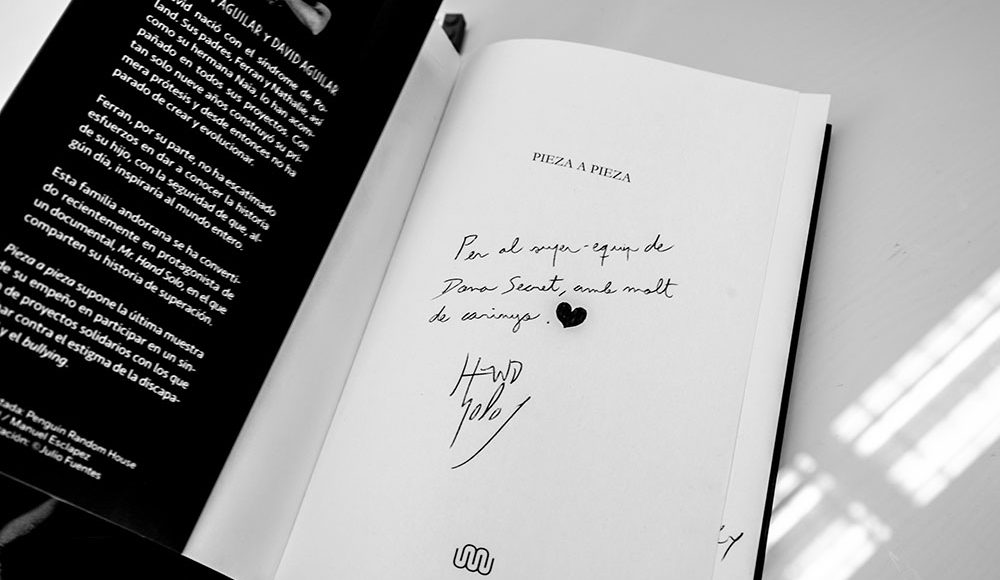 AGUILAR Y DAVID AGUILAR
vid nació con el síndrome de Po-
land. Sus padres, Ferran y Nathalie, así
como su hermana Naia, lo han acom-
pañado en todos sus proyectos. Con
tan solo nueve años construyó su pri-
mera prótesis y desde entonces no ha
parado de crear y evolucionar.
Ferran, por su parte, no ha escatimado
esfuerzos en dar a conocer la historia
de su hijo, con la seguridad de que, al-
gún día, inspiraría al mundo entero.
Esta familia andorrana se ha converti-
do recientemente en protagonista de
un documental, Mr. Hand Solo, en el que
comparten su historia de superación.
Pieza a pieza supone la última muestra
de su empeño en participar en un sin-
de proyectos solidarios con los que
ar contra el estigma de la discapa-
y el bullying.
tada: Penguin Random House
/ Manuel Esclapez
ación: © Julio Fuentes
PIEZA A PIEZA
Per al super-equip de
Dona Secret, amb molt
de carinyo. ♥
HAND
SOLO